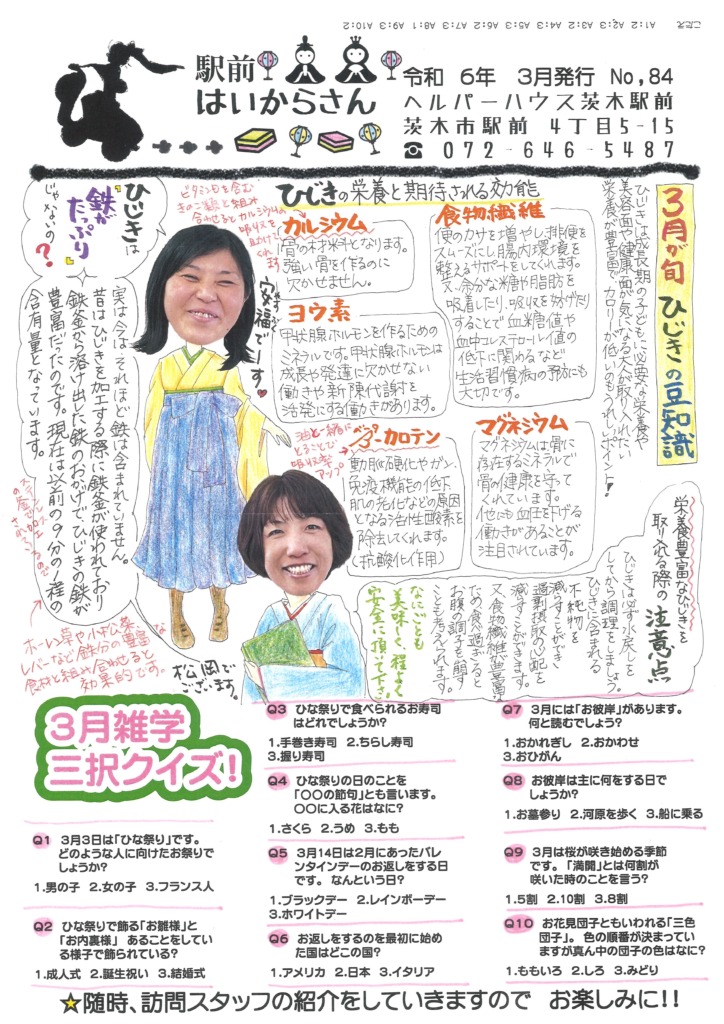 こたえ A1:2 A2:3 A3:2 A4:3 A5:3 A6:2 A7:3 A8:1 A9:3 A10:2
駅前
はいからさん
令和 6年 3月発行 No,84
ヘルパーハウス茨木駅前
茨木市駅前 4丁目5-15
☎ 072-646-5487
3月が旬 ひじきの豆知識
ひじきは成長期の子どもに必要な栄養や
美容面や健康面が気になる人が取り入れたい
栄養が豊富でカロリーが低いのもうれしいポイント!
ひじきの栄養と期待される効能
カルシウム
骨の材料となります。
強い骨を作るのに
欠かせません。
ビタミンDを含む
きのこ類と組み
合わせるとカルシウムの
吸収を
助けてくれます
食物繊維
便のカサを増やし、排便を
スムーズにし腸内環境を
整えるサポートをしてくれます。
又、余分な糖や脂肪を
吸着したり、吸収を妨げたり
することで血糖値や
血中コレステロール値の
低下に関わるなど
生活習慣病の予防にも
大切です。
ヨウ素
甲状腺ホルモンを作るための
ミネラルです。甲状腺ホルモンは
成長や発達に欠かせない
働きや新陳代謝を
活発にする働きがあります。
β-カロテン
動脈硬化やガン、
免疫機能の低下、
肌の老化などの原因
となる活性酸素を
除去してくれます。
(抗酸化作用)
油と一緒に
とることで
吸収率
アップ
マグネシウム
マグネシウムは骨に
存在するミネラルで
骨の健康を守って
くれています。
他にも血圧を下げる
働きがあることが
注目されています。
ひじきは
『鉄が
たっぷり』
じゃないの?
安福です
実は今は、それほど鉄は含まれていません。
昔はひじきを加工する際に鉄釜が使われており
鉄釜から溶け出した鉄のおかげで、ひじきの鉄が
豊富だったのです。現在は以前の9分の1程の
含有量となっています。
ステンレス
の釜で加工
されているので
ホーレン草や小松菜
レバーなど鉄分の豊富な
食材と組み合わせると
効果的です。
松岡で
ございます。
栄養豊富なひじきを
取り入れる際の 注意点
ひじきは必ず水戻しを
してから調理をしましょう。
ひじきに含まれる
不純物を
減すことができ
過剰摂取の心配を
減すことができます。
又食物繊維が豊富な
ため食べ過ぎると
お腹の調子を崩す
ことも考えられます。
なにごとも
美味しく程よく
安全に頂いて下さい
3月雑学
三択クイズ!
Q1 3月3日は「ひな祭り」です。
どのような人に向けたお祭りで
しょうか?
1.男の子 2.女の子 3.フランス人
Q2 ひな祭りで飾る「お雛様」と
「お内裏様」 あることをしてい
る様子で飾られている?
1.成人式 2.誕生祝い 3.結婚式
Q3 ひな祭りで食べられるお寿司
はどれでしょうか?
1.手巻き寿司 2.ちらし寿司
3.握り寿司
Q4 ひな祭りの日のことを
「〇〇の節句」とも言います。
〇〇に入る花はなに?
1.さくら 2.うめ 3.もも
Q5 3月14日は2月にあったバレ
ンタインデーのお返しをする日
です。 なんという日?
1.ブラックデー 2.レインボーデー
3.ホワイトデー
Q6 お返しをするのを最初に始め
た国はどこの国?
1.アメリカ 2.日本 3.イタリア
Q7 3月には「お彼岸」があります。
何と読むでしょう?
1.おかれぎし 2.おかわせ
3.おひがん
Q8 お彼岸は主に何をする日で
しょうか?
1.お墓参り 2.河原を歩く 3.船に乗る
Q9 3月は桜が咲き始める季節
です。 「満開」とは何割が
咲いた時のことを言う?
1.5割 2.10割 3.8割
Q10 お花見団子ともいわれる「三色
団子」。 色の順番が決まってい
ますが真ん中の団子の色はなに?
1.ももいろ 2.しろ 3.みどり
☆随時、訪問スタッフの紹介をしていきますので お楽しみに!!